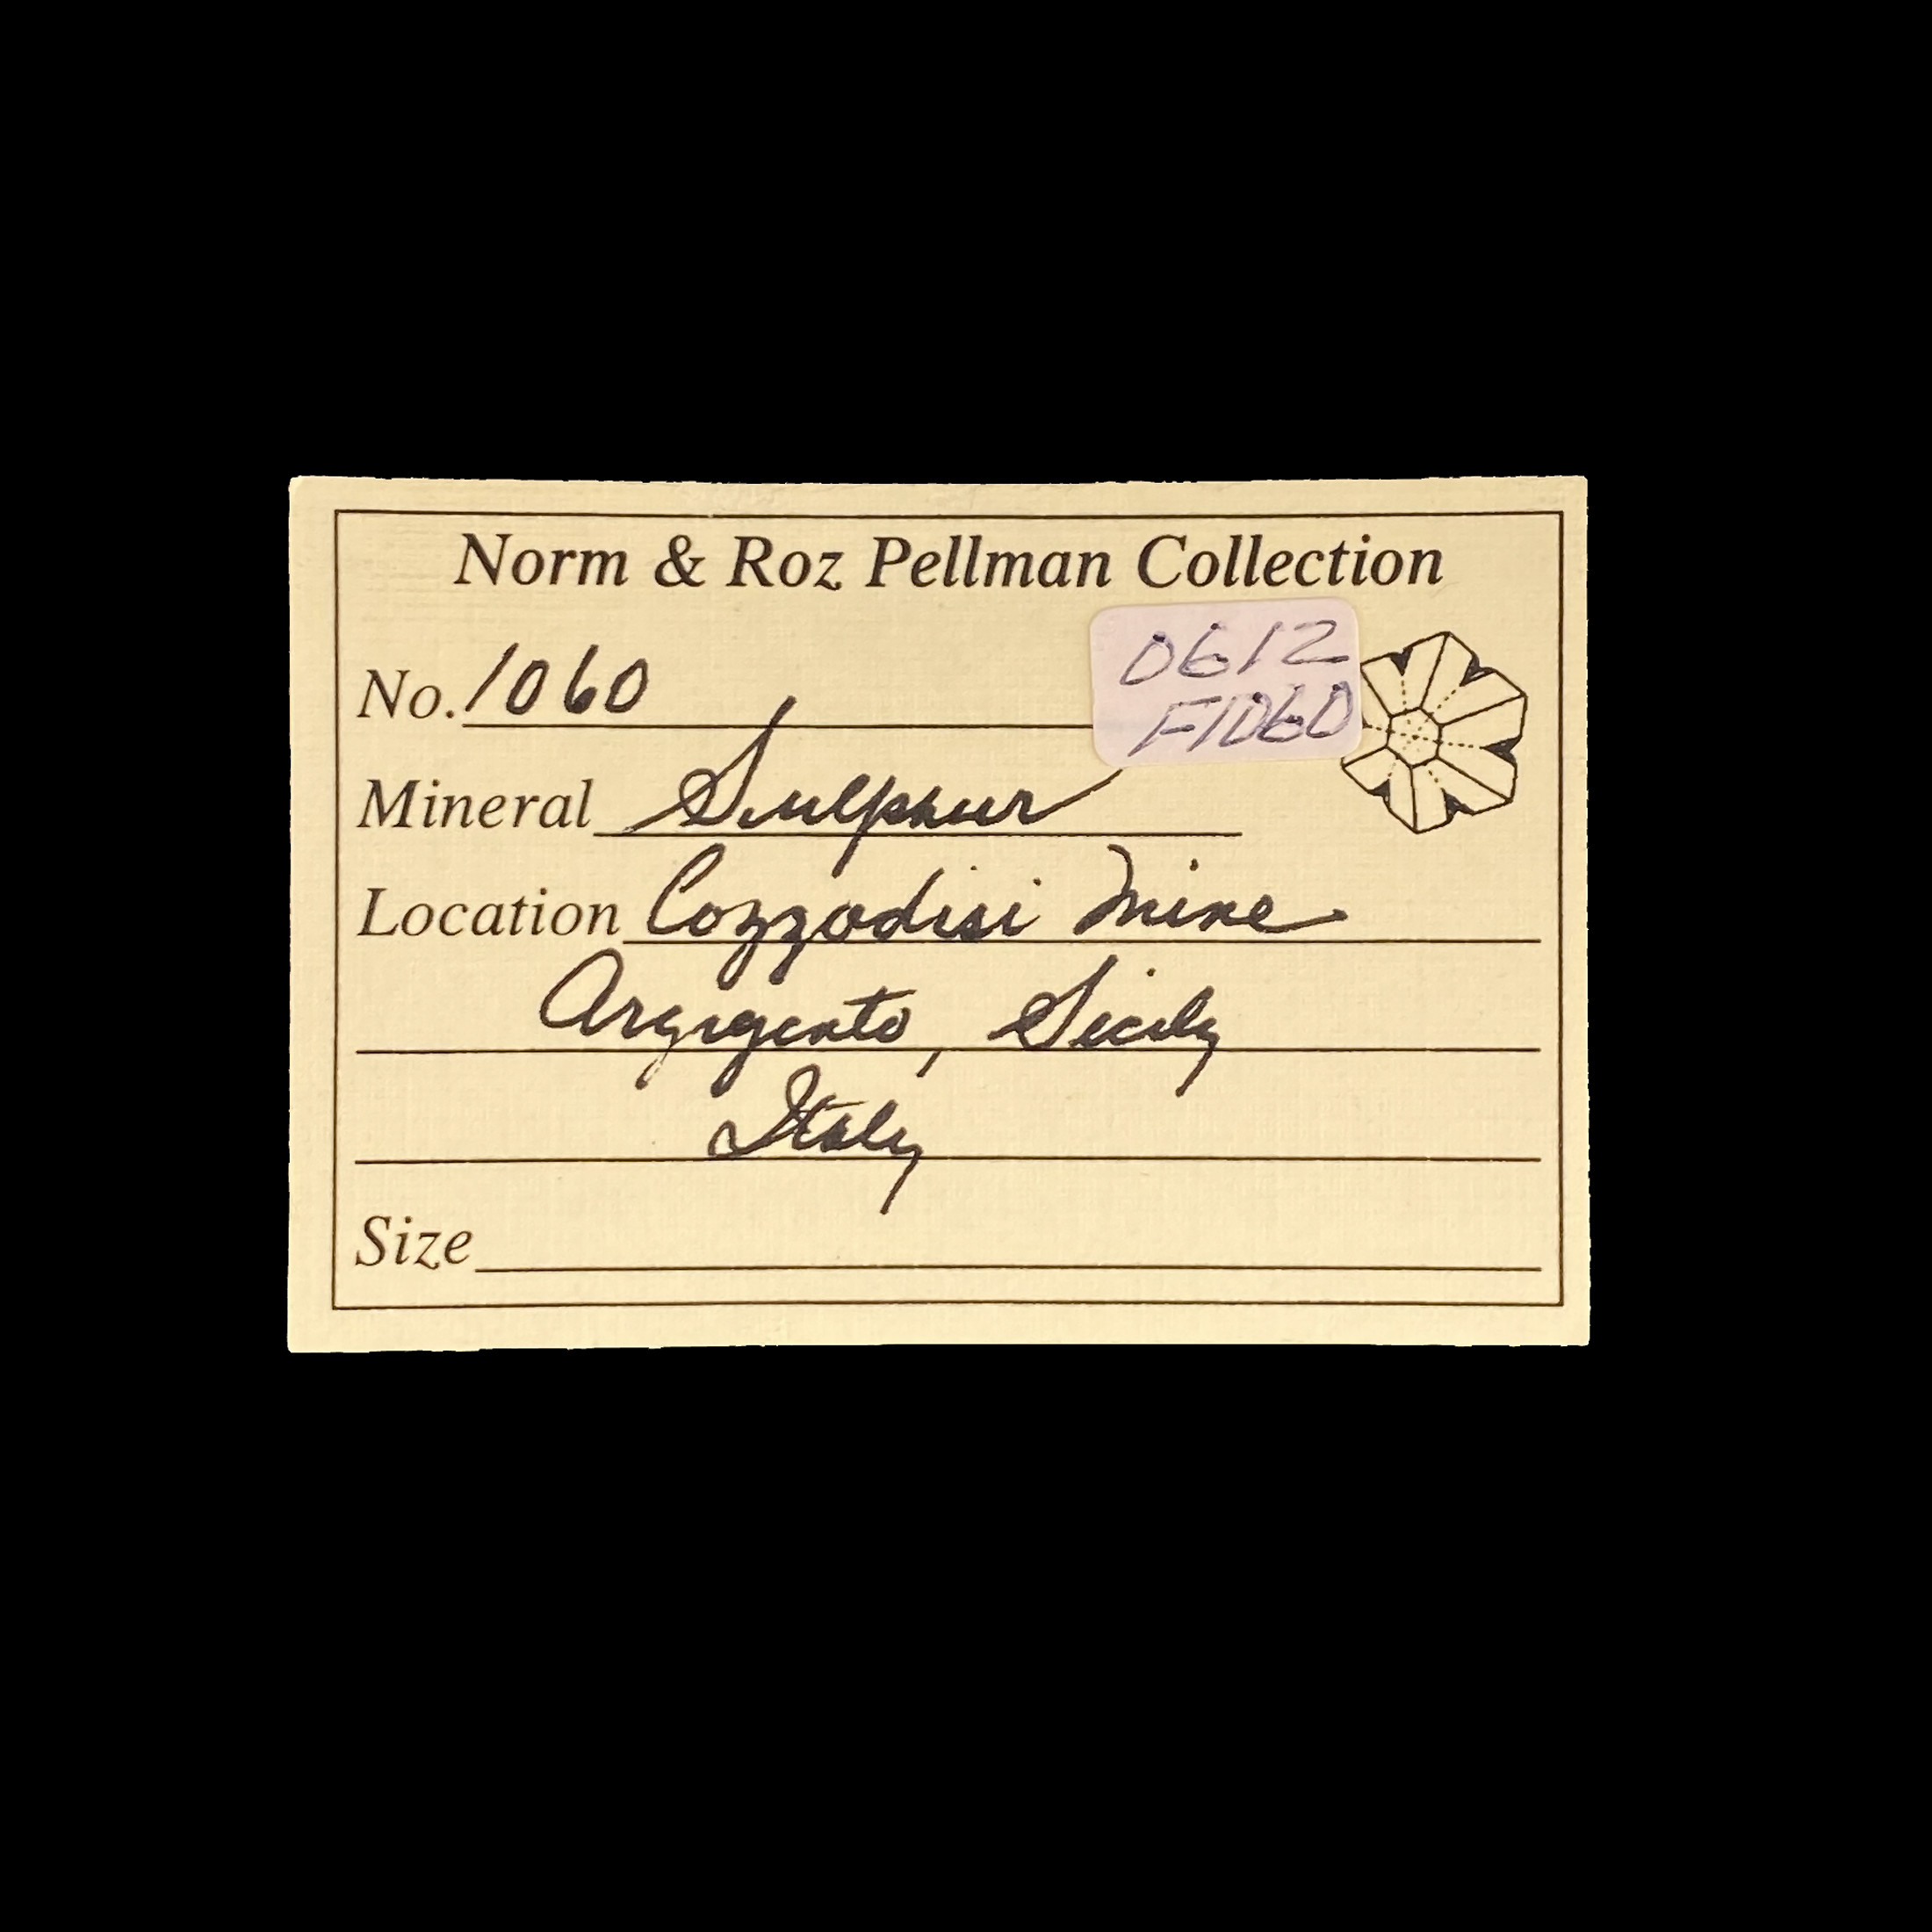 Norm & Roz Pellman Collection
0612
F1060
No. 1060
Mineral Sulphur
Location Cozzodisi Mine
Argigento, Sicily
Italy
Size